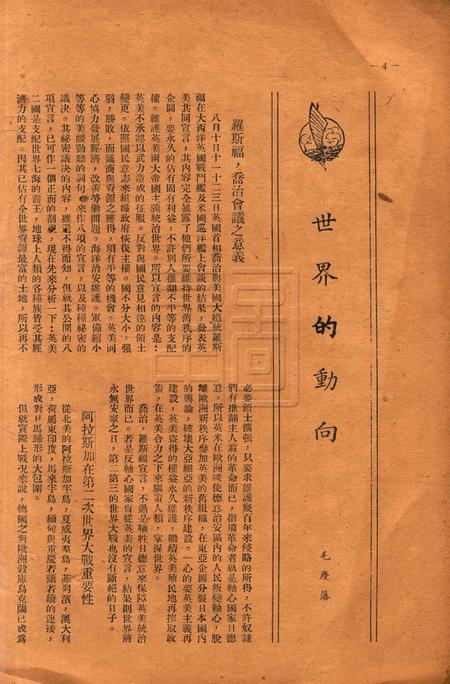 — 4 —
世界的動向
毛慶藩
羅斯福，喬治會議之意義
八月十日十一十二三日英國首相喬治與美國大總統羅斯
福在大西洋英國戰鬥艦及米國巡洋艦上會談的結果，發表英
美共同宣言，其內容完全暴露了他們所要維持世界舊秩序的
企圖，要永久的佔有固有利益，不許別人推翻不平等的支配
權。維護英美兩大帝國主義統治世界。所以宣言的內容是：
英美不承認以武力造成的征服。反對與國民意見相違的領土
變更。依照國民意志來組織政府恢復主權。國不分大小，强
弱，勝敗，而通商與資源之獲得，須有平等的機會。英美同
心協力發展經濟，改善勞働問題。海洋治安維護。軍備縮小
等等的美麗動聽的詞句，來作八項的宣言，以及種種秘密的
議決。其秘密議決的內容，雖還不得而知，但就其公開的八
項宣言，已可作一個正面的剖視，現在先來分析一下：英美
二國是支配世界七海的霸王，地球上人類的各種族皆受其經
濟力的支配。因其已佔有全世界資源最富的土地，所以再不
必要領土擴張，只要求維護幾百年來侵略的所得，不許奴隸
們有推翻主人翁的革命而已，指導革命者就是軸心國家日德
意，所以英米在歐洲唆使德意治安區內的人民叛變軸心，脫
離歐洲新秩序參加英美的舊組織，在東亞企圖分裂日本國內
的輿論，破壞大亞細亞的新秩序建設。一心的要英美主義再
建設，英美盜得的權益永久維護，繼續英美殖民地再搾取政
策，在英美合力之下來驅策人類，掌握世界。
喬治，羅斯福宣言，不過是犧牲日德意來保障英美統治
世界而已。若是反軸心國家盲從英美的宣言，結果則世界將
永無安寧之日，第二第三的世界大戰也沒有斷絕的日子。
阿拉斯加在第二次世界大戰重要性
從北美的阿拉斯加半島，夏威夷羣島，菲列濱，澳大利
亞，荷屬東印度，馬來半島，緬甸與重慶蔣者的連接，
形成對日馬蹄形的大包圍。
但就實際上戰況來說，德國之對歐洲猛虎烏克蘭已成為